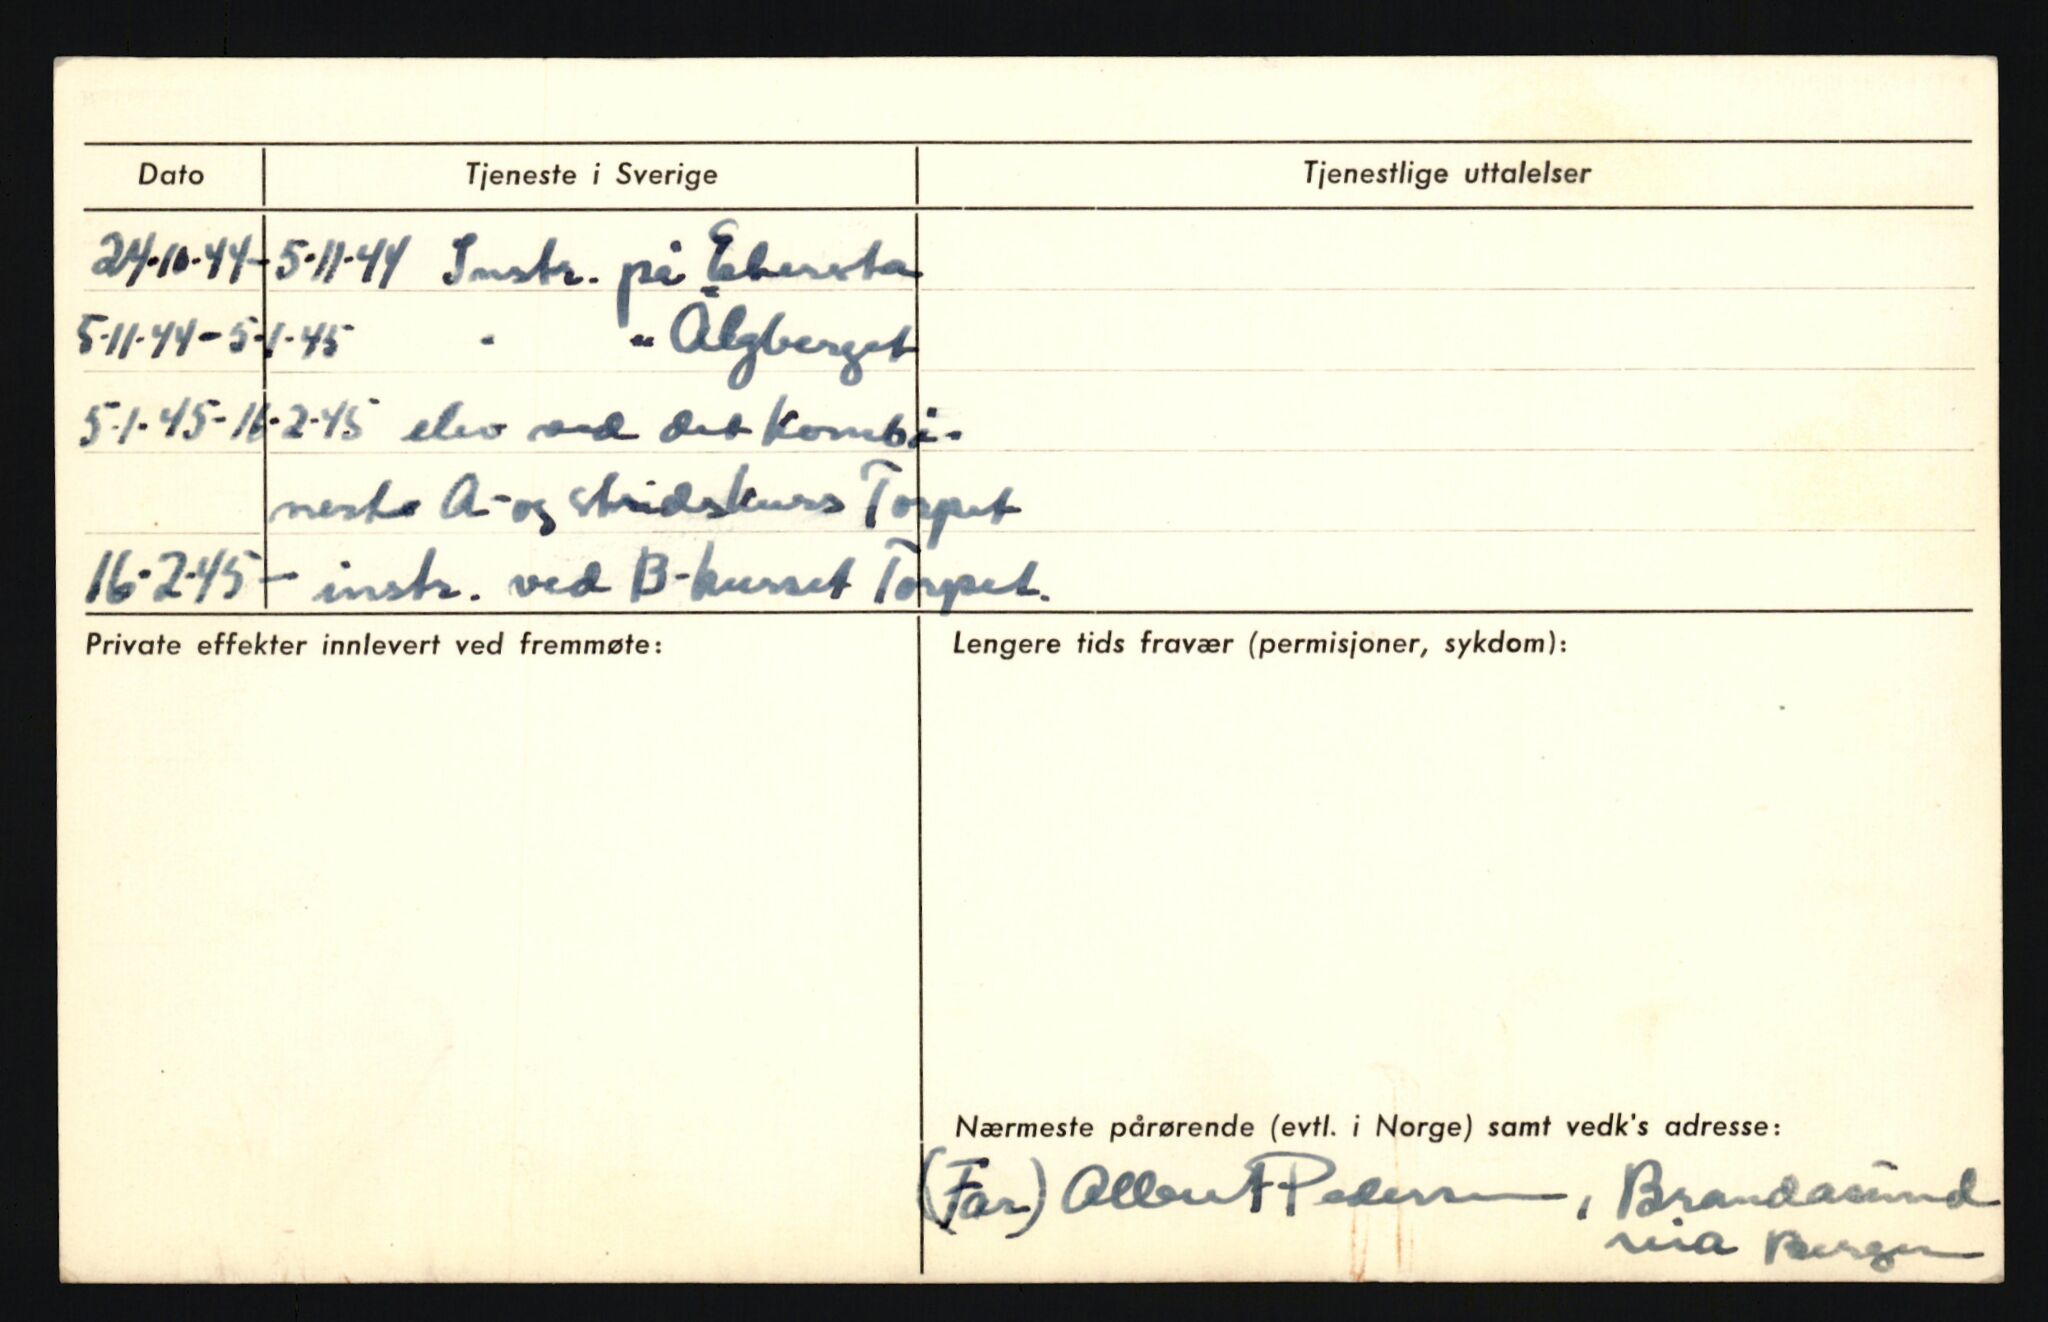 Dato Tjeneste i Sverige Tjenestlige uttalelser
24.10.44-5.11.44 Instr. på
5.11.44-5.1.45 " " Älgberget
5.1.45-16.2.45 elev ved det kombi-
nerte A-og stridskurs Torpet
16.2.45- instr. ved B-kurset Torpet.
Private effekter innlevert ved fremmøte: Lengere tids fravær (permisjoner, sykdom):
Nærmeste pårørende (evtl. i Norge) samt vedk's adresse:
(Far) Albert Pedersen, Brandasund
via Bergen